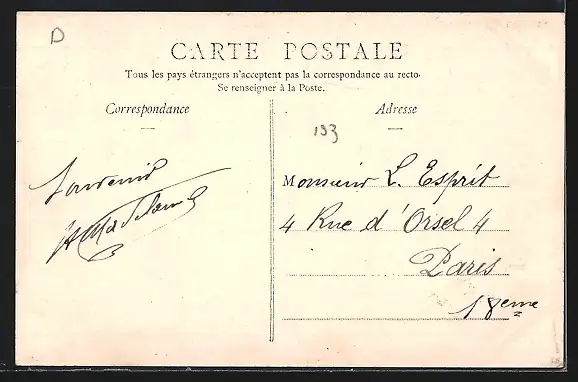 D
CARTE POSTALE
Tous les pays étrangers n'acceptent pas la correspondance au recto.
Se renseigner à la Poste.
Correspondance
Souvenir
Adresse
193
Monsieur L. Esprit
4 Rue d'Orsel 4
Paris
18eme